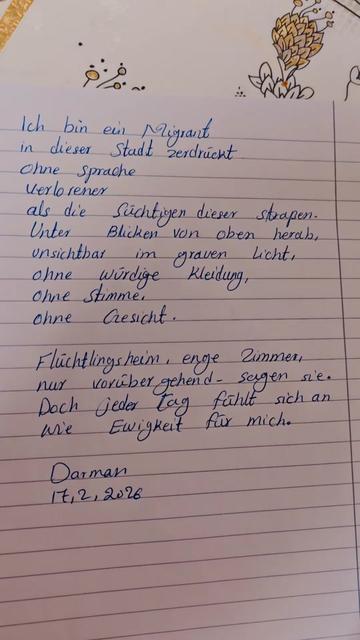 Ich bin ein Migrant
in dieser Stadt zerdrückt
ohne sprache
verlorener
als die Süchtigen dieser strapen.
Unter Blicken von oben herab,
unsichtbar im graven licht,
ohne würdige kleidung,
ohne stimme,
ohne Gesicht.
Flüchtlingsheim, enge Zimmer,
nur vorübergehend - sagen sie.
Doch jeder Tag fühlt sich an
wie Ewigkeit für mich.
Darman
17,2,2026